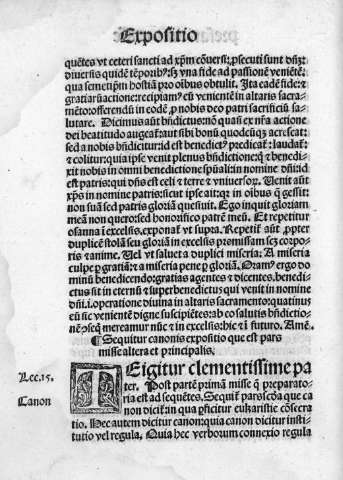 Expositio
quẽtes vt ceteri sancti ad xp̃m cõuersi; p̱secuti sunt dñz:
diuersis quidẽ tẽporibꝰ: sz vna fide ad passionẽ veniẽtẽ:
qua semetip̃m hostiã pro oĩbus obtulit. Ita eadẽ fide: et
gratiarũ actione: recipiamꝰ eũ venientẽ in altaris sacra-
mẽto: offerendũ in eodẽ pro nobis deo patri sacrificiũ sa-
lutare. Dicimus aut bñdictus: nõ quã ex nr̃a actione
dei beatitudo augeat: aut sibi bonũ quodcũqz acrescat:
sed a nobis bñdicitur: id est benedictꝰ predicat: laudat:
et colitur: quia ipse venit plenus bñdictione: qz et benedi-
xit nobis in omni benedictione spũali: in nomine dñi: id
est patris: qui dñs est celi et terre et vniuersorum. Venit aut
xp̃s in nomine patris: sicut ipse ait: qz in oĩbus que gessit:
non suã sed patris gloriã quesiuit. Ego inquit gloriam
meã non quero: sed honorifico patrẽ meũ. Et repetitur
osanna in excelsis, exponat vt supra. Repetit aut propter
duplicẽ stolã seu gloriã in excelsis promissam sz corpo-
ris et anime. Vel vt saluet a duplici miseria: A miseria
culpe per gratiã: et a miseria pene per gloriã. Oramꝰ ergo do-
minũ benedicendo: gratias agentes et dicentes. benedi-
ctus sit in eternũ et superbenedictus qui venit in nomine
dñi. i. operatione diuina in altaris sacramento: quatinus
eũ sic venientẽ digne suscipiẽtes: ab eo salutis bñdictio-
nẽ consequi mereamur nũc et in excelsis: hic et in futuro. Amẽ.
¶ Sequitur canonis expositio que est pars
misse altera et principalis.
Lec. 15.
TE igitur clementissime pa
ter. Post partẽ primã misse que preparato-
ria est ad sequẽtes. Sequit pars secõda que ca
Canon
non dicit: in qua perficitur eukaristie cõsecra
tio. Hec autem dicitur canon: quia canon dicitur insti-
tutio vel regula, Quia hec verborum connexio regula